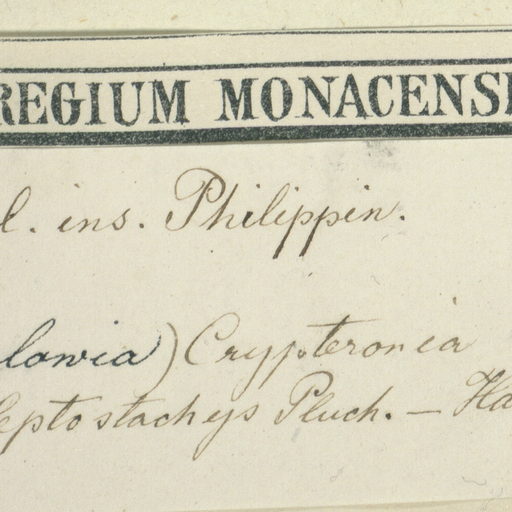 REGIUM MONACENS
l. ins. Philippin.
lowia) Crypteronia
leptostachys Pluch. — Ha